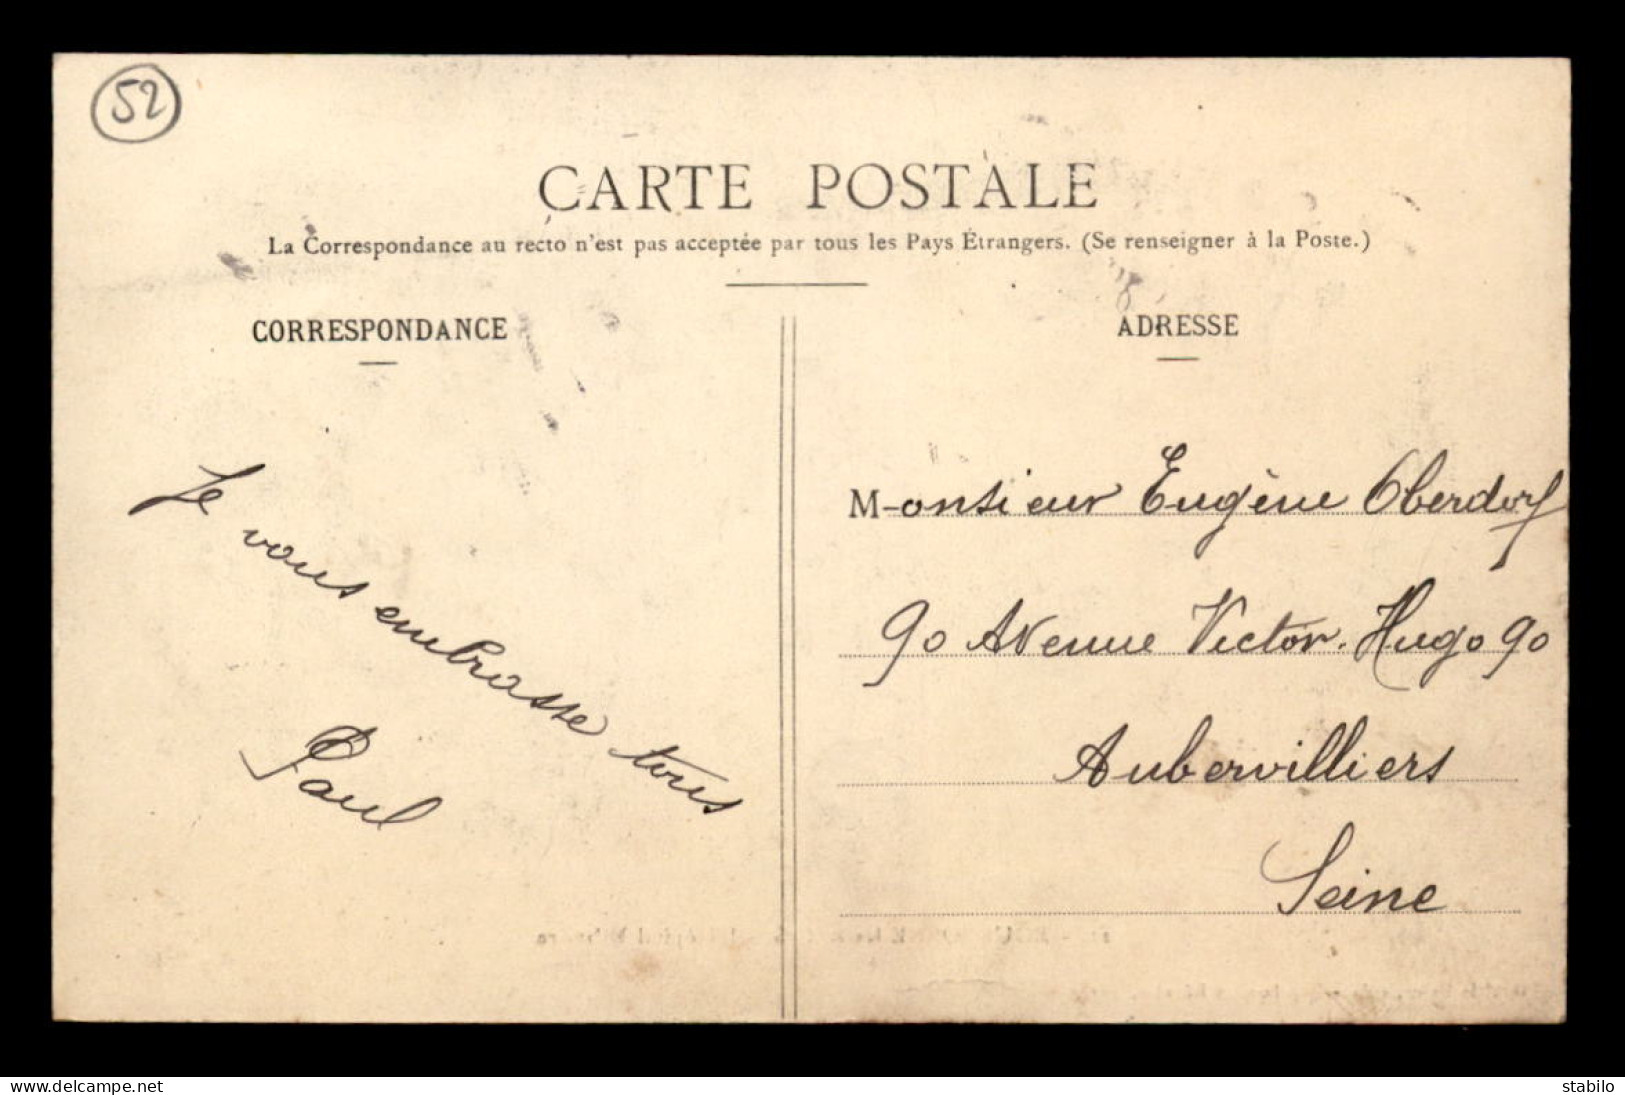 52
CARTE POSTALE
La Correspondance au recto n'est pas acceptée par tous les Pays Étrangers. (Se renseigner à la Poste.)
CORRESPONDANCE
ADRESSE
Je vous embrasse tous
Paul
Monsieur Eugène Oberdorf
90 Avenue Victor-Hugo 90
Aubervilliers
Seine
www.delcampe.net
stabilo